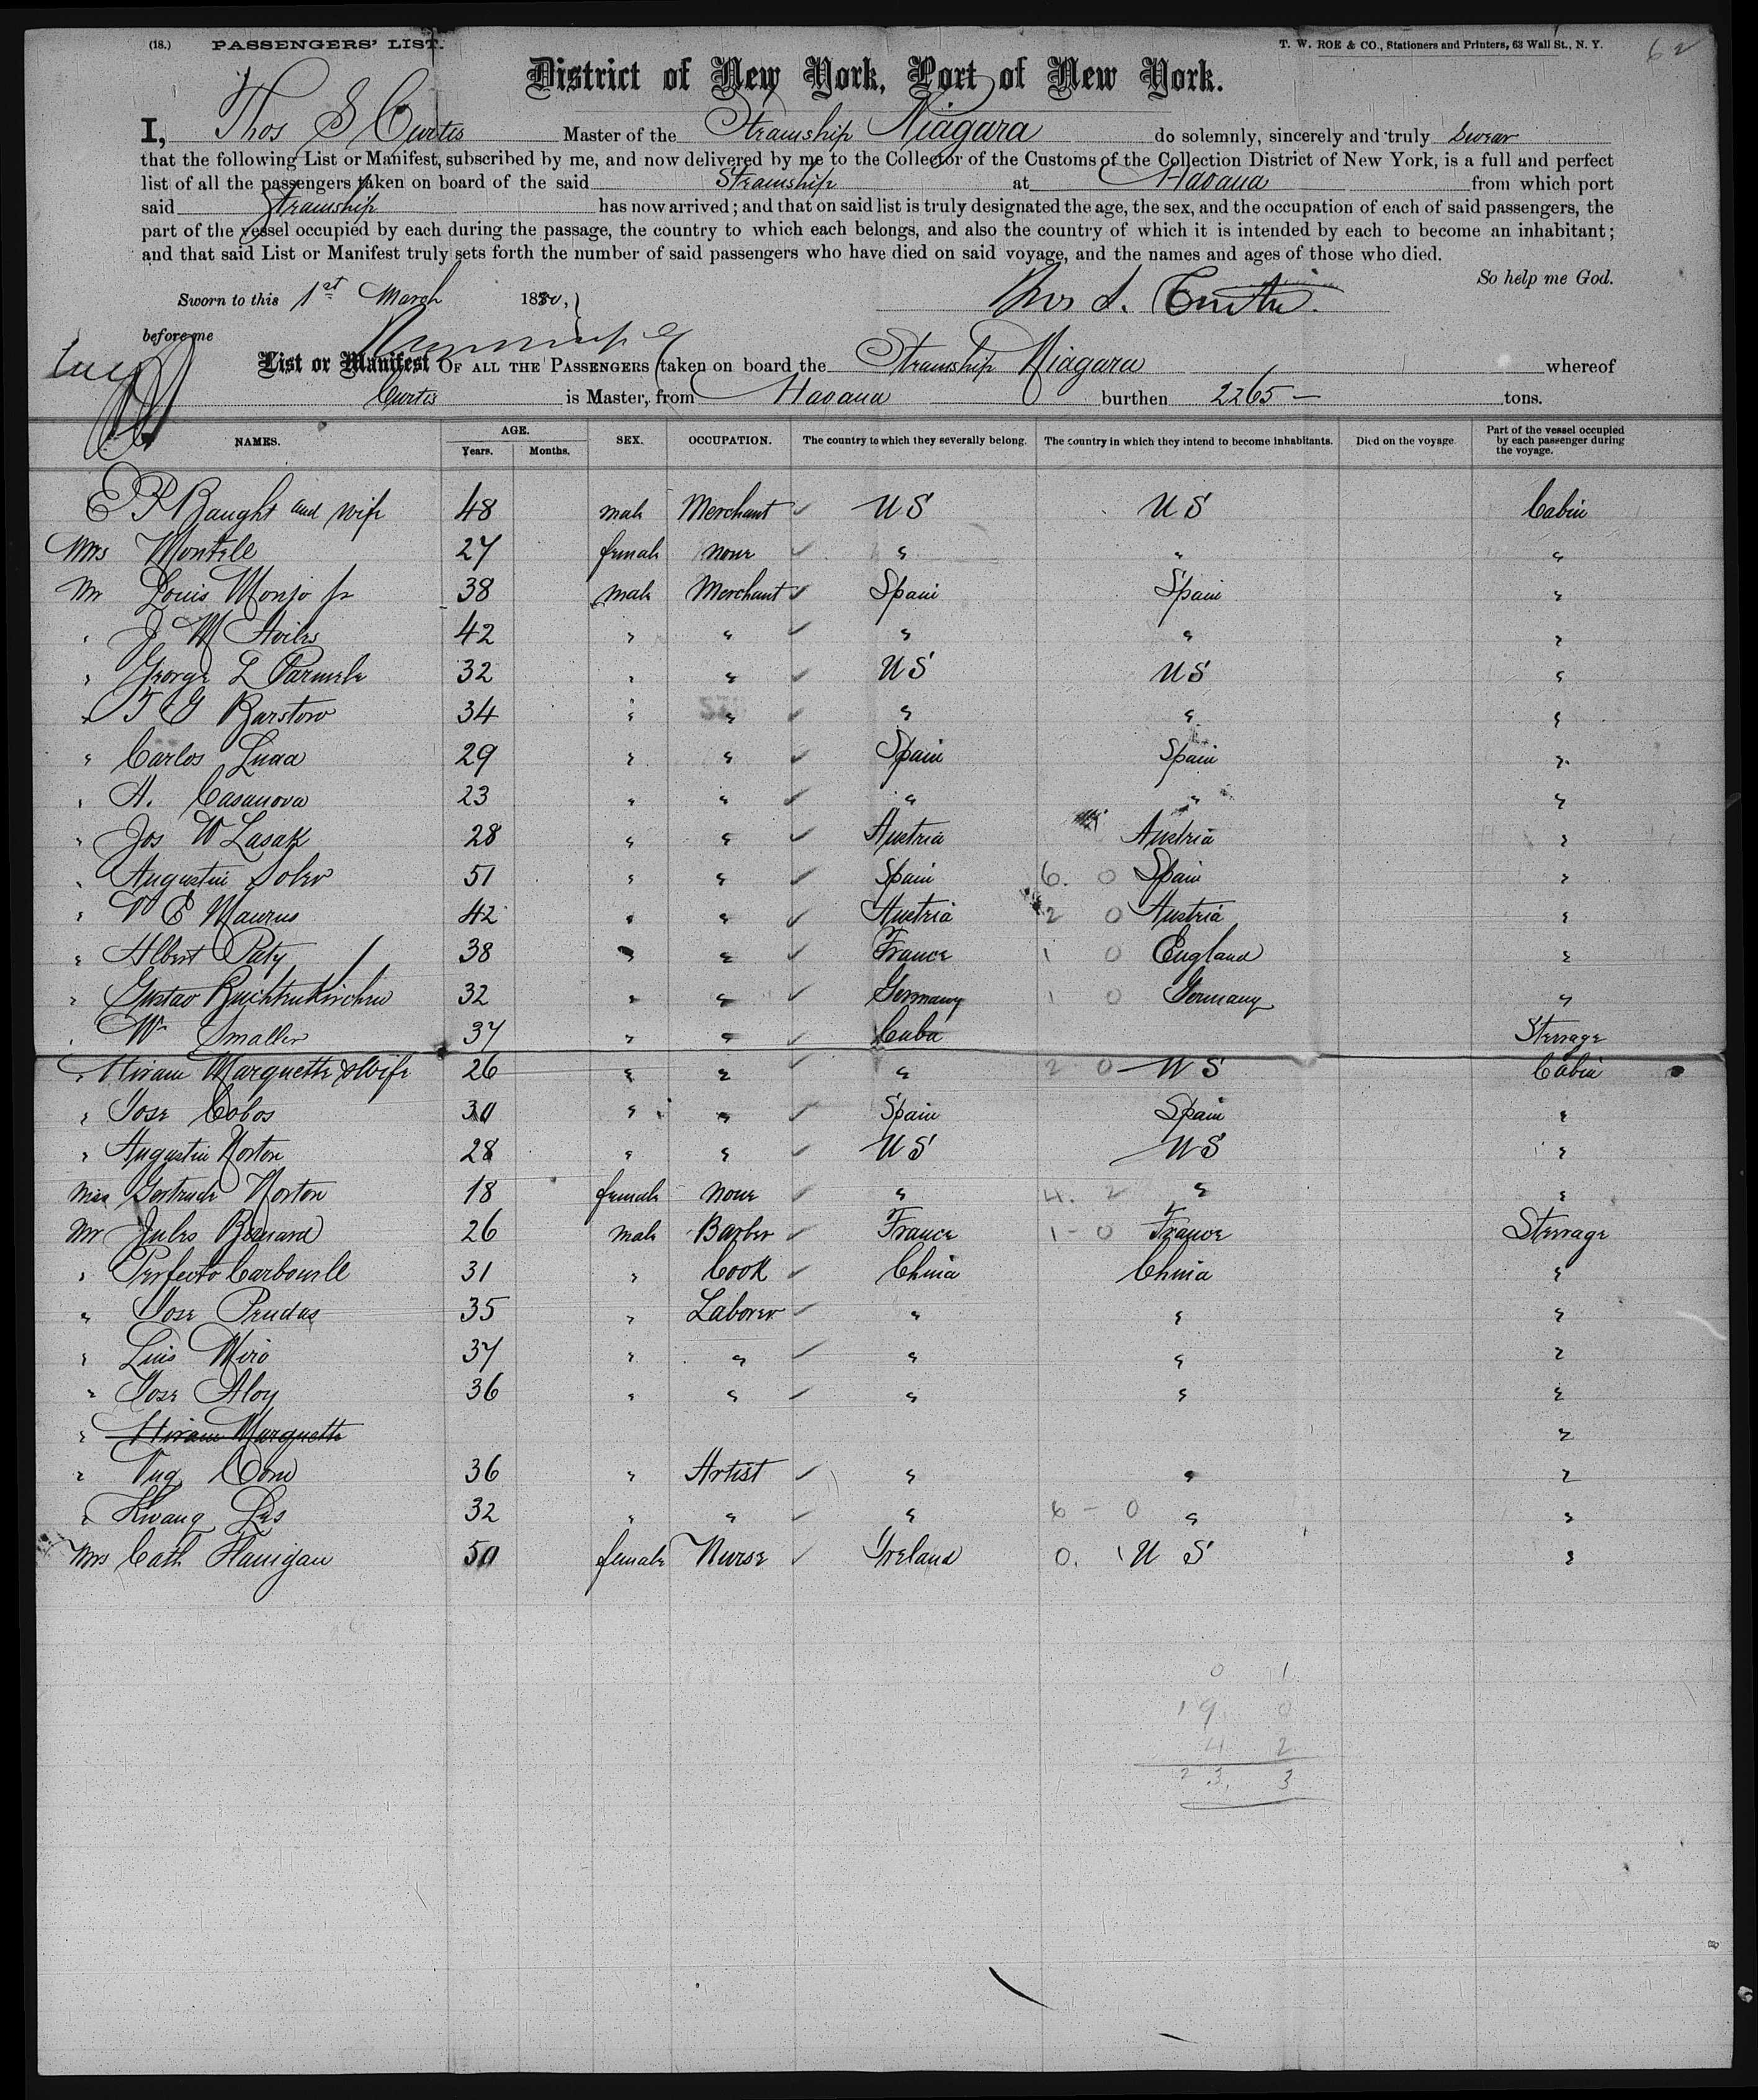 (18.) PASSENGERS' LIST. T. W. ROE & CO., Stationers and Printers, 63 Wall St., N. Y. 62
District of New York, Port of New York.
I, Thos S Curtis Master of the Steamship Niagara do solemnly, sincerely and truly swear
that the following List or Manifest, subscribed by me, and now delivered by me to the Collector of the Customs of the Collection District of New York, is a full and perfect
list of all the passengers taken on board of the said Steamship at Havana from which port
said Steamship has now arrived; and that on said list is truly designated the age, the sex, and the occupation of each of said passengers, the
part of the vessel occupied by each during the passage, the country to which each belongs, and also the country of which it is intended by each to become an inhabitant;
and that said List or Manifest truly sets forth the number of said passengers who have died on said voyage, and the names and ages of those who died.
So help me God.
Sworn to this 1st March 1880, Thos S. Curtis.
before me
List or Manifest OF ALL THE PASSENGERS taken on board the Steamship Niagara whereof
Curtis is Master, from Havana burthen 2265 — tons.
NAMES. AGE. Years. Months. SEX. OCCUPATION. The country to which they severally belong. The country in which they intend to become inhabitants. Died on the voyage. Part of the vessel occupied by each passenger during the voyage.
E P Baught and wife 48 male Merchant ✓ US US Cabin
Mrs Montell 27 female none ✓ " " "
Mr Louis Monjo jr 38 male Merchant ✓ Spain Spain "
" J M Aviles 42 " " ✓ " " "
" George L Parmele 32 " " ✓ US US "
" T G Barstow 34 " " ✓ " " "
" Carlos 29 " " ✓ Spain Spain "
" A. Casanova 23 " " ✓ " " "
" Jos W Lasak 28 " " ✓ Austria Austria "
" Augustin Soler 51 " " ✓ Spain 6. 0 Spain "
" V E Maurus 42 " " ✓ Austria 2 0 Austria "
" Albert Paty 38 " " ✓ France 1 0 England "
" Gustav 32 " " ✓ Germany 1 0 Germany "
" Wm Smaller 37 " " Cuba Steerage
" Hiram Marquette & Wife 26 " " ✓ " 2 0 US Cabin
" Jose Cobos 30 " " ✓ Spain Spain "
" Augustin Norton 28 " " ✓ US US "
Miss Gertrude Norton 18 female none ✓ " 4. 2 " "
Mr Jules 26 male Barber ✓ France 1 - 0 France Steerage
" Perfecto Carbonell 31 " Cook ✓ China China "
" Jose Prudas 35 " Laborer ✓ " " "
" Luis Miro 37 " " ✓ " " "
" Jose Aloy 36 " " ✓ " " "
" Hiram Marquette "
" Com 36 " Artist ✓ " " "
" Kwang Les 32 " " ✓ " 6 - 0 " "
Mrs Cath Flanigan 50 female Nurse ✓ Ireland 0. 1 U S "
0 1
19 0
4 2
23. 3